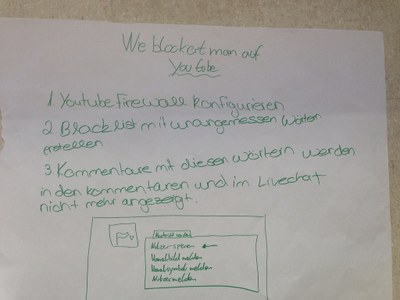 We blockert man auf
YouTube
1. Youtube Firewall konfigurieren
2. Blacklist mit unangemessen Wörten
erstellen
3. Kommentare mit diesen wörtern werden
in den kommentaren und im Livechat
nicht mehr angezeigt.
Nutzer sperren
Kanalbild melden
Kanalsymbol melden
Nutzer melden